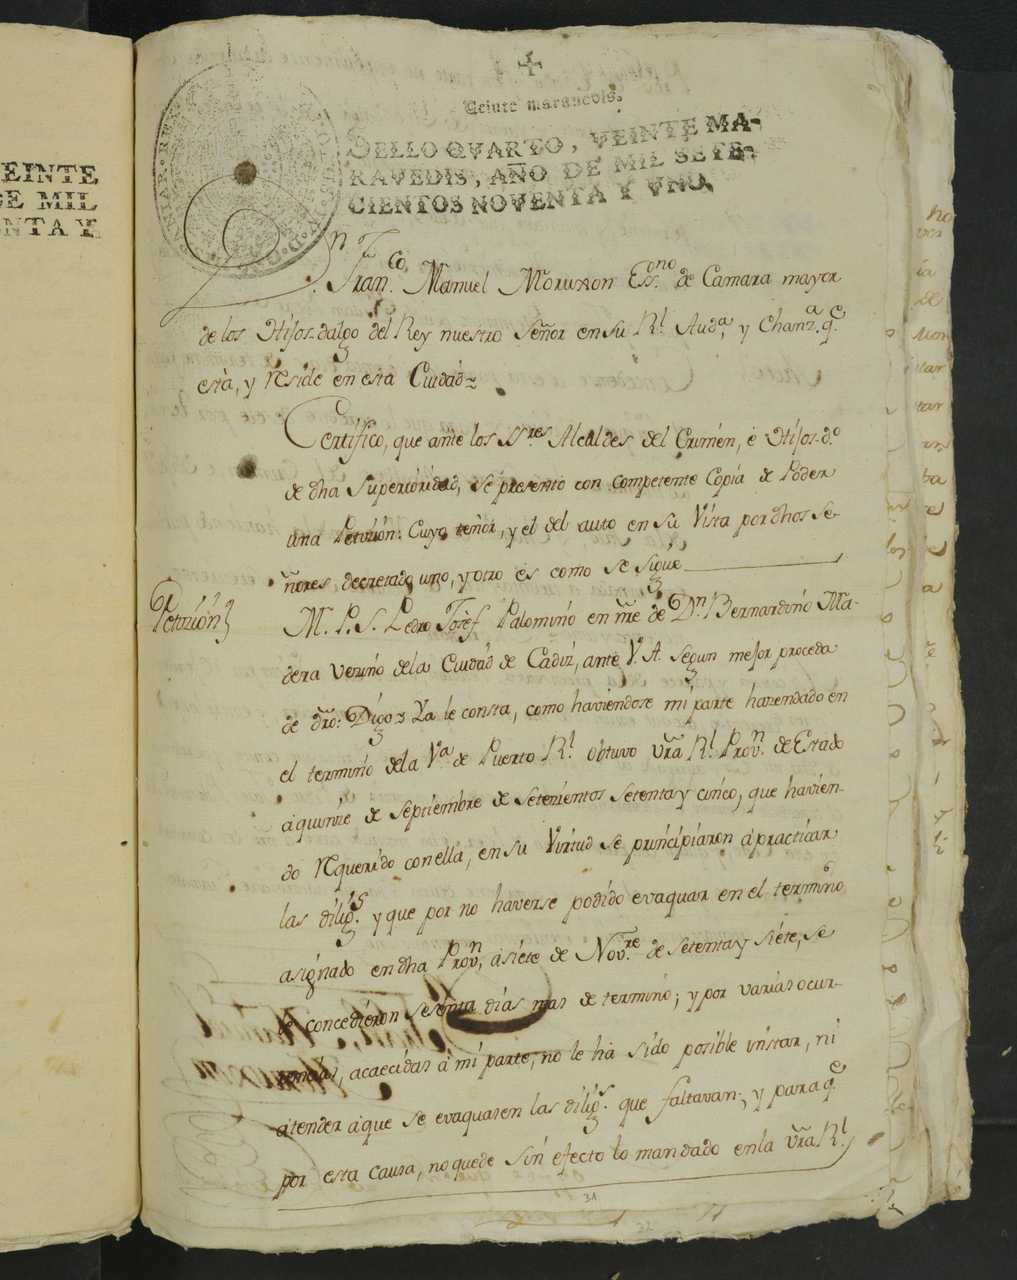 Veinte maravedis.
SELLO QVARTO, VEINTE MA-
RAVEDIS, AÑO DE MIL SETE-
CIENTOS NOVENTA Y VNO.
EINTE
DE MIL
NTA Y
Dn. Franco. Manuel Moruxon Essno. de Camara mayor
de los Hijos-dalgo del Rey nuestro Señor en su Rl. Auda. y Chanza. qe.
està, y reside en esta Ciudad
Certifico, que ante los SSres Alcaldes del Crimen, è Hijos-do.
de dha Superioridad, se presentò con competente Copia de Poder
una Peticion: Cuyo tenor, y el del auto en su Vista por dhos Se-
ñores, decretado uno, y otro es como se sigue
Peticion
M. P. S. Pedro Josef Palomino en nre de Dn. Bernardino Ma-
dera vecino de la Ciudad de Cadiz, ante V. A. segun mejor proceda
de dro: Digo Ya le consta, como haviendose mi parte hacendado en
el termino de la Va. de Puerto Rl. obtuvo vra Rl. Provn. de Estado
à quince de Septiembre de setecientos setenta y cinco, que havien-
do requerido con ella, en su Virtud se principiaron à practicar
las diligs. y que por no haverse podido evaquar en el termino
asignado en dha Provn. à siete de Novre. de setenta y siete, se
le concedieron sesenta dias mas de termino; y por varias ocur-
rencias, acaecidas à mi parte, no le ha sido posible instar, ni
atender à que se evaquasen las diligs. que faltavan; y para qe.
por esta causa, no quede sin efecto lo mandado en la vra Rl.
31
32